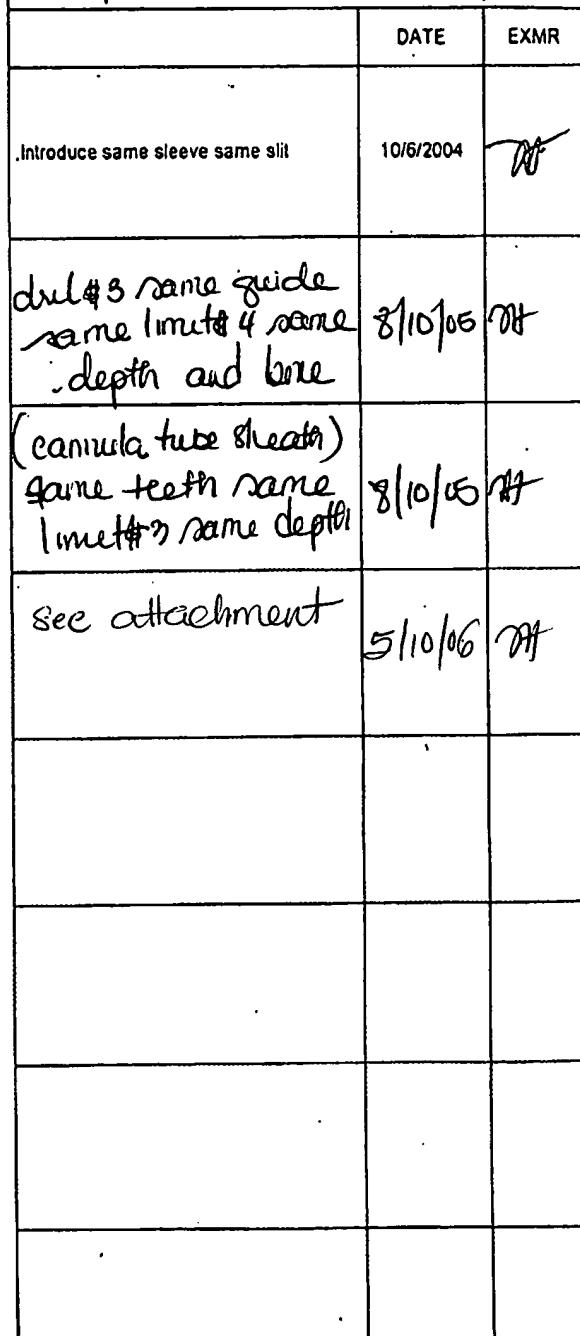 DATE EXMR
.Introduce same sleeve same slit 10/6/2004
dril$3 same guide
same limit$ 4 same 8/10/05
.depth and bone
(cannula tube sheath)
same teeth same 8/10/05
limit$3 same depth
see attachment
5/10/06